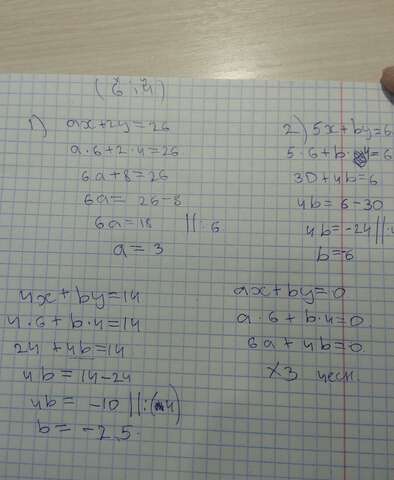 (6 ; 4)
x y
1) ax+2y=26
a·6+2·4=26
6a+8=26
6a= 26-8
6a=18 ||:6
a = 3
2) 5x+by=6
5·6+b·4=6
30+4b=6
4b=6-30
4b=-24||:4
b=-6
4x+by=14
4·6+b·4=14
24+4b=14
4b=14-24
4b= -10||:(4)
b=-2,5.
ax+by=0
a·6+b·4=0
6a+4b=0
ХЗ чесн.